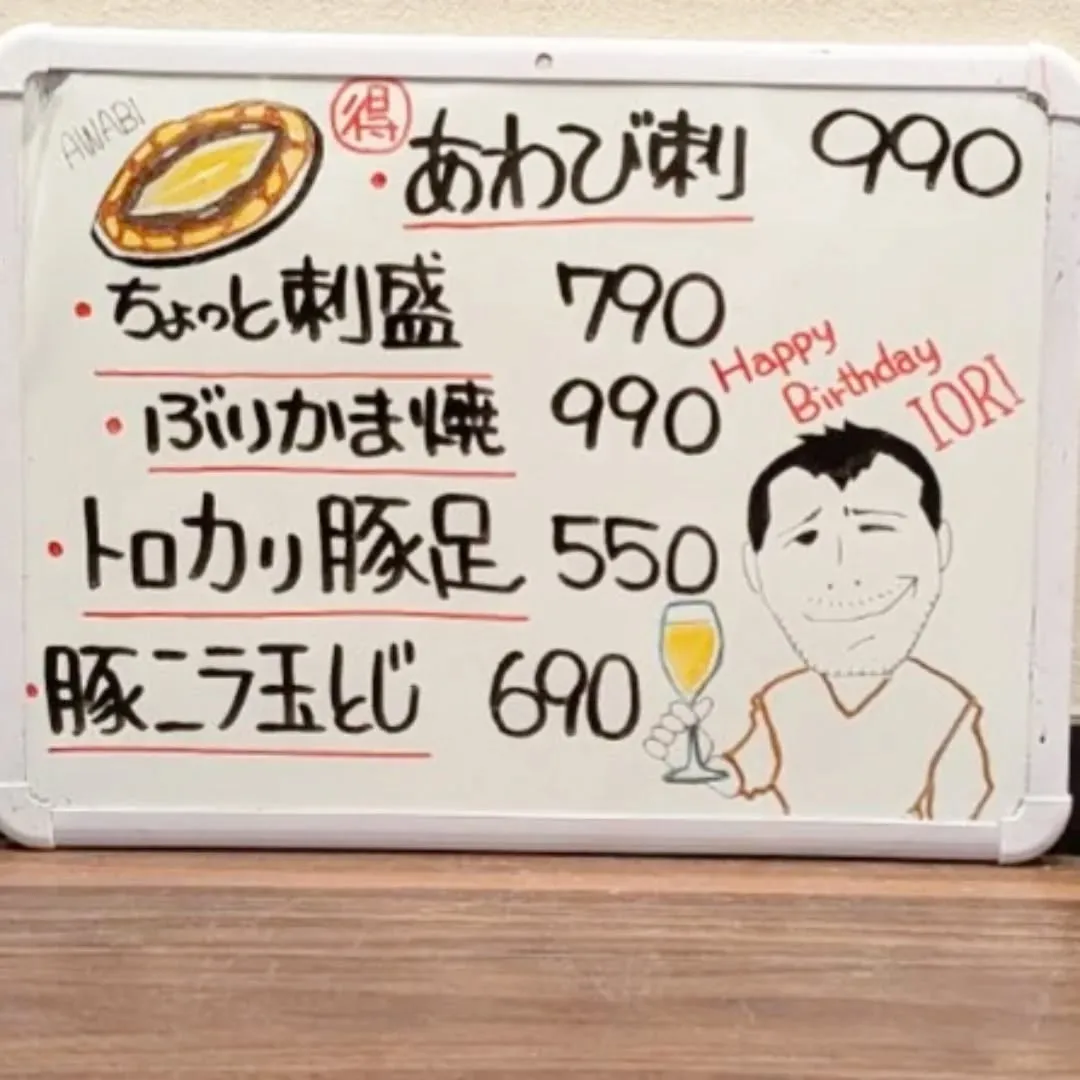 AWABI
得
・あわび刺 990
・ちょっと刺盛 790
・ぶりかま焼 990
・トロカリ豚足 550
・豚ニラ玉とじ 690
Happy
Birthday
IORI